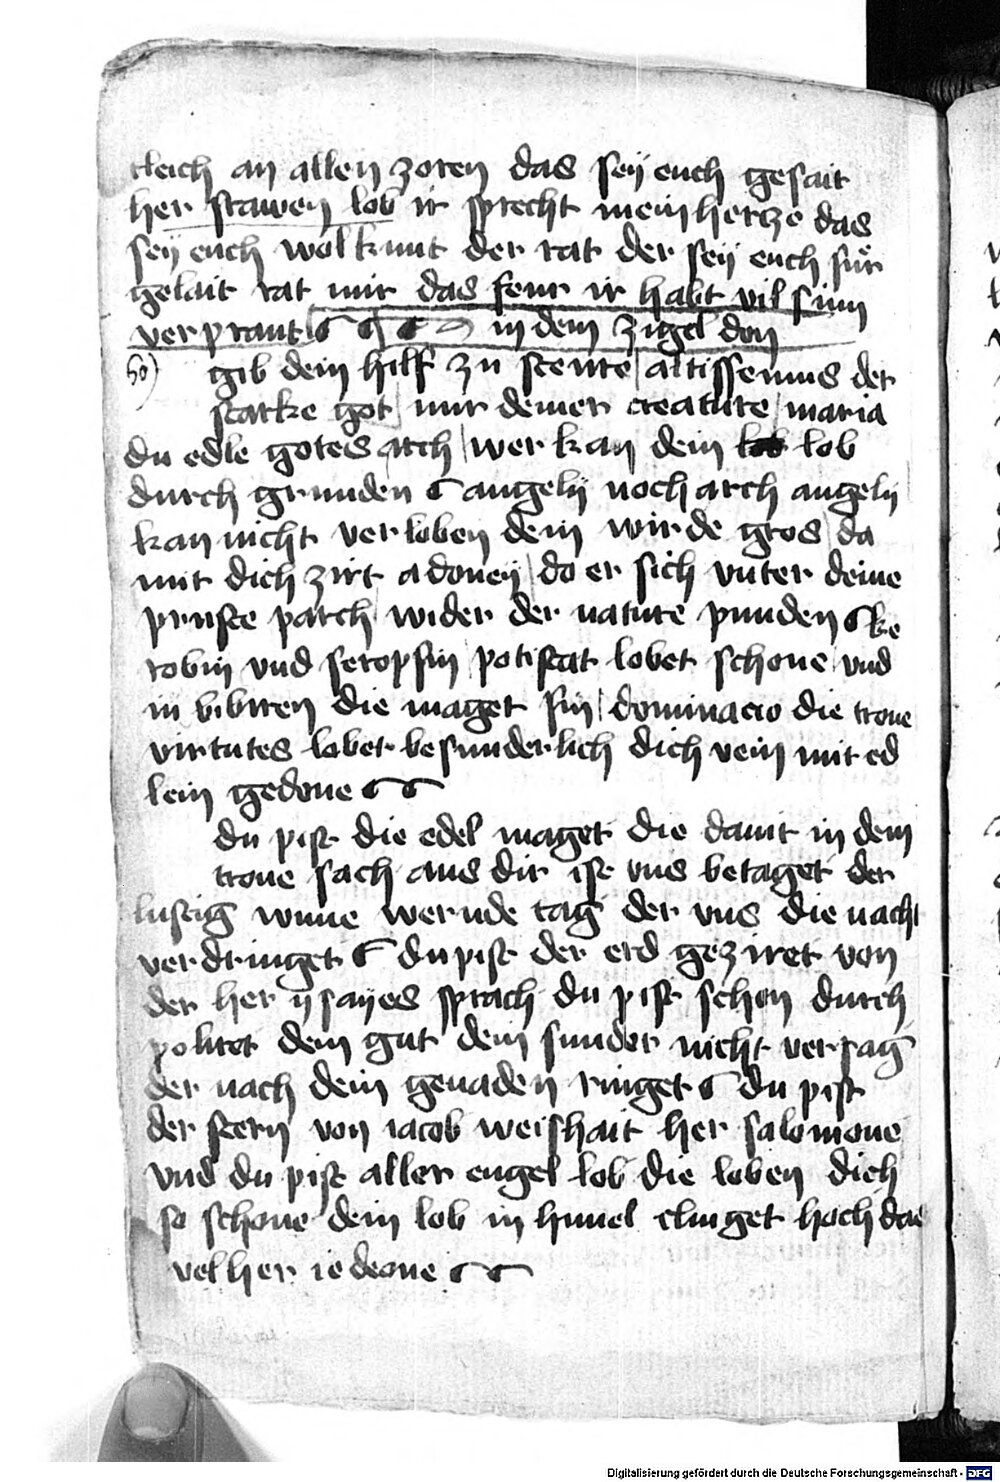 cleich an allen zoren das seÿ euch gesait
her frawen lob ir sprecht mein hertze das
seÿ euch wol kunt der rat der seÿ euch für
gelait rat mir das feur ir habt vil sinn
verprant in dem zugel don
50) gib dein hilf zu steure altissemus der
starke got mir deiner creature maria
du edle gotes arch wer kan dein lob lob
durch grunden angelÿ noch arch angelÿ
kan nicht verloben dein wirde gros da
mit dich zirt adoneÿ do er sich vnter deine
pruste parch wider der nature punden ke
robin vnd seropfin potistat lobet schone vnd
in bibiren die maget fin dominacio die trone
virtutes lobet besunderlich dich rein mit ed
lein gedone
du pist die edel maget die dauit in dem
trone sach aus dir ist vns betaget der
lustig wune wernde tag der vns die nacht
verdringet du pist der erd geziret von
der her ÿsaÿes sprach du pist schon durch
poliret dem gut dem sunder nicht versag
der nach dein genaden ringet du pist
der stern von iacob weishait her salomone
vnd du pist aller engel lob die loben dich
so schone dein lob in himel clinget hoch das
vel her iedeone
Digitalisierung gefördert durch die Deutsche Forschungsgemeinschaft - DFG